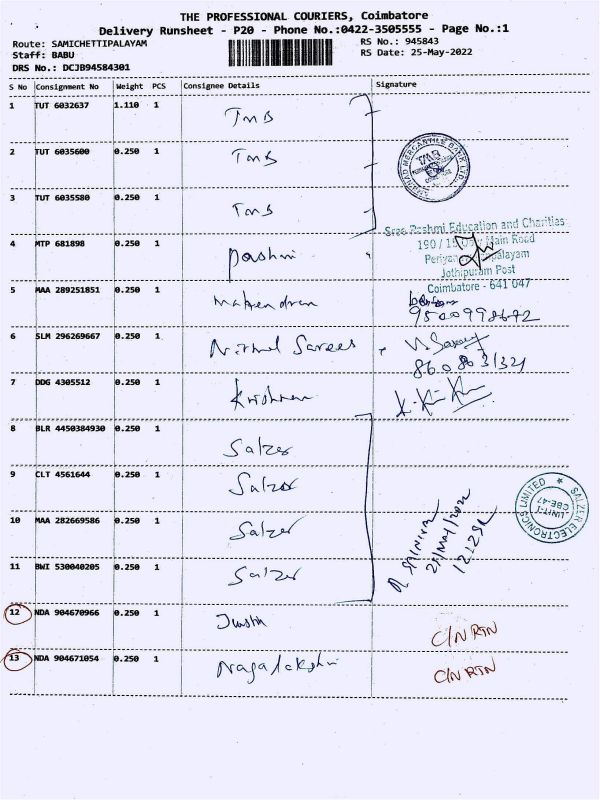 THE PROFESSIONAL COURIERS, Coimbatore
Delivery Runsheet - P20 - Phone No.:0422-3505555 - Page No.:1
Route: SAMICHETTIPALAYAM
Staff: BABU
DRS No.: DCJB94584301
RS No.: 945843
RS Date: 25-May-2022
S No Consignment No Weight PCS Consignee Details Signature
1 TUT 6032637 1.110 1 TMB
2 TUT 6035600 0.250 1 TMB
3 TUT 6035580 0.250 1 TMB
4 MTP 681898 0.250 1 Pashmi
Sree Rashmi Education and Charities
190 / Main Road
Jothipuram Post
Coimbatore - 641 047
5 MAA 289251851 0.250 1 Mahendran
6 SLM 296269667 0.250 1 Nirmul Sarees
7 DDG 4305512 0.250 1 Krishnan
8 BLR 4450384930 0.250 1 Salzer
9 CLT 4561644 0.250 1 Salzer
SALZER ELECTRONICS LIMITED
UNIT-I
CBE-47
10 MAA 282669586 0.250 1 Salzer
25/May/2022
11 BWI 530040205 0.250 1 Salzer
12 NDA 904670966 0.250 1 Justin C/N RTN
13 NDA 904671054 0.250 1 Nagalakshmi C/N RTN